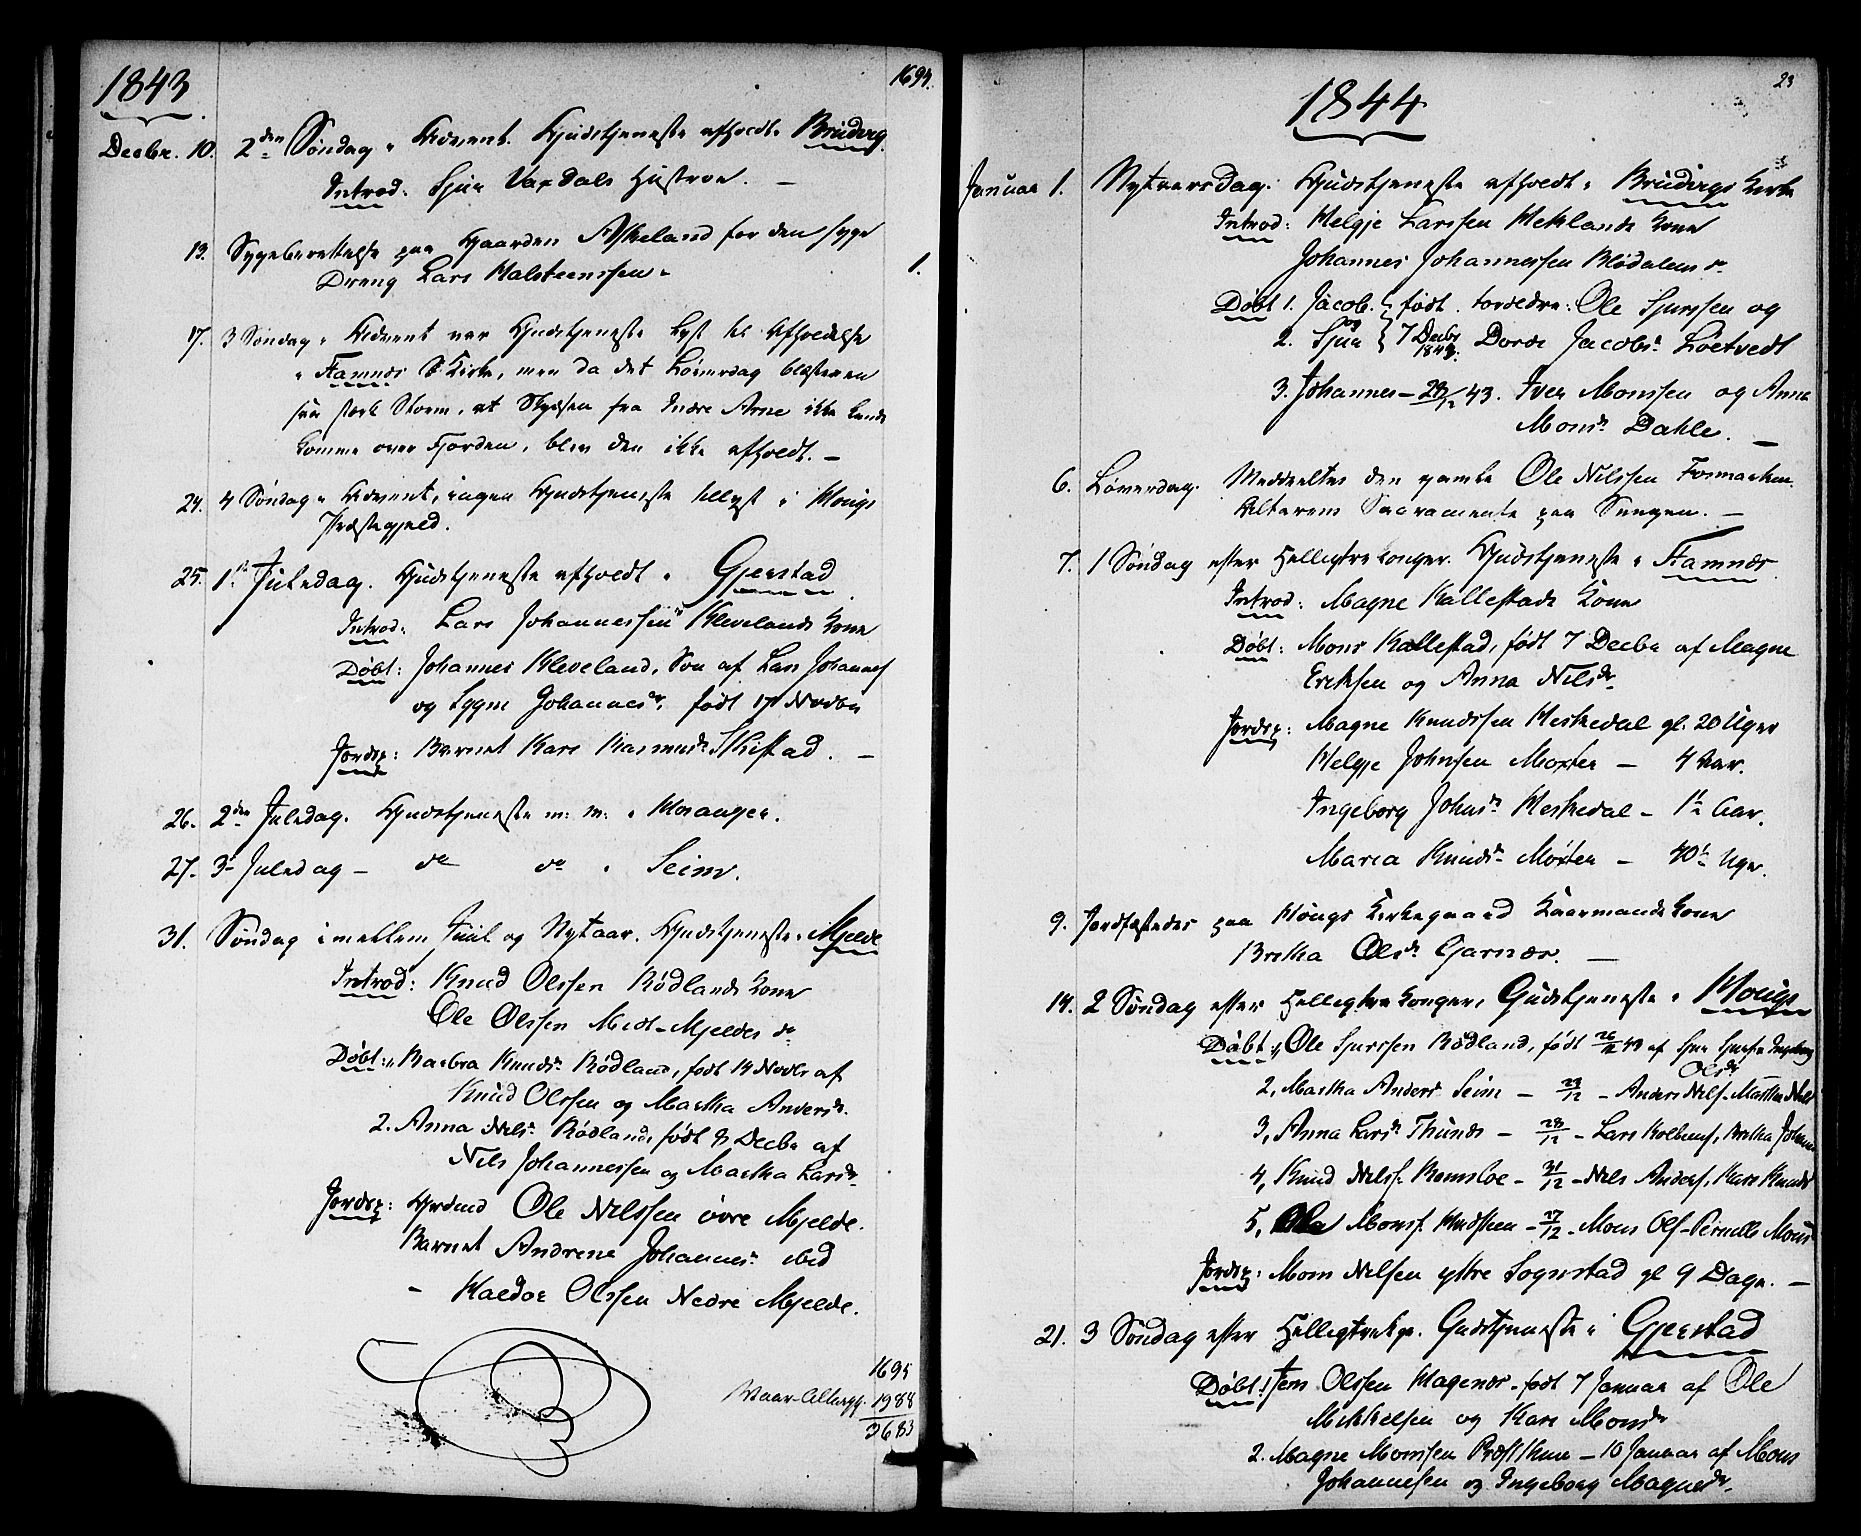 1843
1694.
Decbr. 10. 2den Søndag i Advent. Gudstjeneste afholdt i Brudvig.
Introd: Sjur Vaxdals Hustroe. —
13. Sygeberettelse paa Gaarden Askeland for den syge
Dreng Lars Halsteensen.
1.
17. 3 Søndag i Advent var Gudstjeneste lyst til Afholdelse
i Hamnes Kirke, men da det Løverdag blæste en
saa stærk Storm, at Skydsen fra Indre Arne ikke kunde
komme over Fjorden, blev den ikke afholdt. —
24. 4 Søndag i Advent, ingen Gudstjeneste tillyst i Hougs
Præstegjeld.
25. 1ste Juledag. Gudstjeneste afholdt i Gjerstad
Introd: Lars Johannessen Klevelands Kone
Døbt: Johannes Kleveland, Søn af Lars Johannes
og Sygni Johannesdr, født 17 Novbr
Jordsp: Barnet Kari Rasmusdr Skistad. —
26. 2den Juledag. Gudstjeneste m: m: i Hosanger.
27. 3- Juledag - do do i Seim.
31. Søndag imellem Juul og Nytaar. Gudstjeneste i Mjelde
Introd: Knud Olssen Rødlands Kone
Ole Olssen Midt-Mjeldes do
Døbt: 1. Barbra Knudsdr Rødland, født 14 Novbr af
Knud Olssen og Martha Andersdr.
2. Anna Nilsdr Rødland, født 8 Decbr af
Nils Johannessen og Martha Larsdr.
Jordsp: Ole Nilssen øvre Mjelde.
Barnet Andrine Johannesdr ibid
- Haldor Olssen Nedre Mjelde.
1695
Vaar-Altergg. 1988
3683
23
1844
Januar 1. Nytaarsdag. Gudstjeneste afholdt i Brudvigs Kirke
Introd: Helgje Larssen Hetlands Kone
Johannes Johannessen Blødalens do
Døbt 1. Jacob. og } født Forældre: Ole Sjurssen og
2. Sjur } 7 Decbr 1843. Dorde Jacobsdr Loetvedt
3. Johannes - 23/12 43. Iver Monssen og Anna
Monsdr Dahle. —
6. Løverdag. Meddeeltes den gamle Ole Nilssen Fosmarken
Alterens Sacramente paa Sengen. —
7. 1 Søndag efter Helligtrekonger. Gudstjeneste i Hamnes.
Introd: Magne Kallestads Kone
Døbt: Mons Kallestad, født 7 Decbr af Magne
Eriksen og Anna Nilsdr.
Jordsp: Magne Knudssen Heskedal gl. 20 Uger
Helgje Johnsen Moster — 4 Aar.
Ingeborg Johnsdr Heskedal - 1½ Aar.
Maria Knudsdr Moster — 40½ Uger.
9. Jordfæstedes paa Hougs Kirkegaard Kaarmands Kone
Britha Olsdr Garnæs. —
14. 2 Søndag efter Helligtrekonger, Gudstjeneste i Hougs
Døbt: 1, Ole Sjurssen Rødland, født 26/12 43 af Sjur Ingeborg
Olsdr
2, Martha Anders Seim - 29/12 - Anders Nilss. Martha Nils
3, Anna Larsdr Thunæs - 28/12 - Lars Kolbens, Britha Johann
4, Knud Nilss. Romsloe - 31/12 - Nils Anders, Kari Knuds
5, Ole Monss. - 27/12 - Mons Ols - Pernille Mons
Jordsp: Mons Nilsen ytre Sognstad gl 9 Dage. —
21. 3 Søndag efter Helligtrekgr. Gudstjeneste i Gjerstad
Døbt: 1 Jens Olssen Hagenæs - født 7 Januar af Ole
Mikkelsen og Kari Monsdr
2. Magne Monssen Præsthun - 10 Januar af Mons
Johannesen og Ingeborg Magnedr.